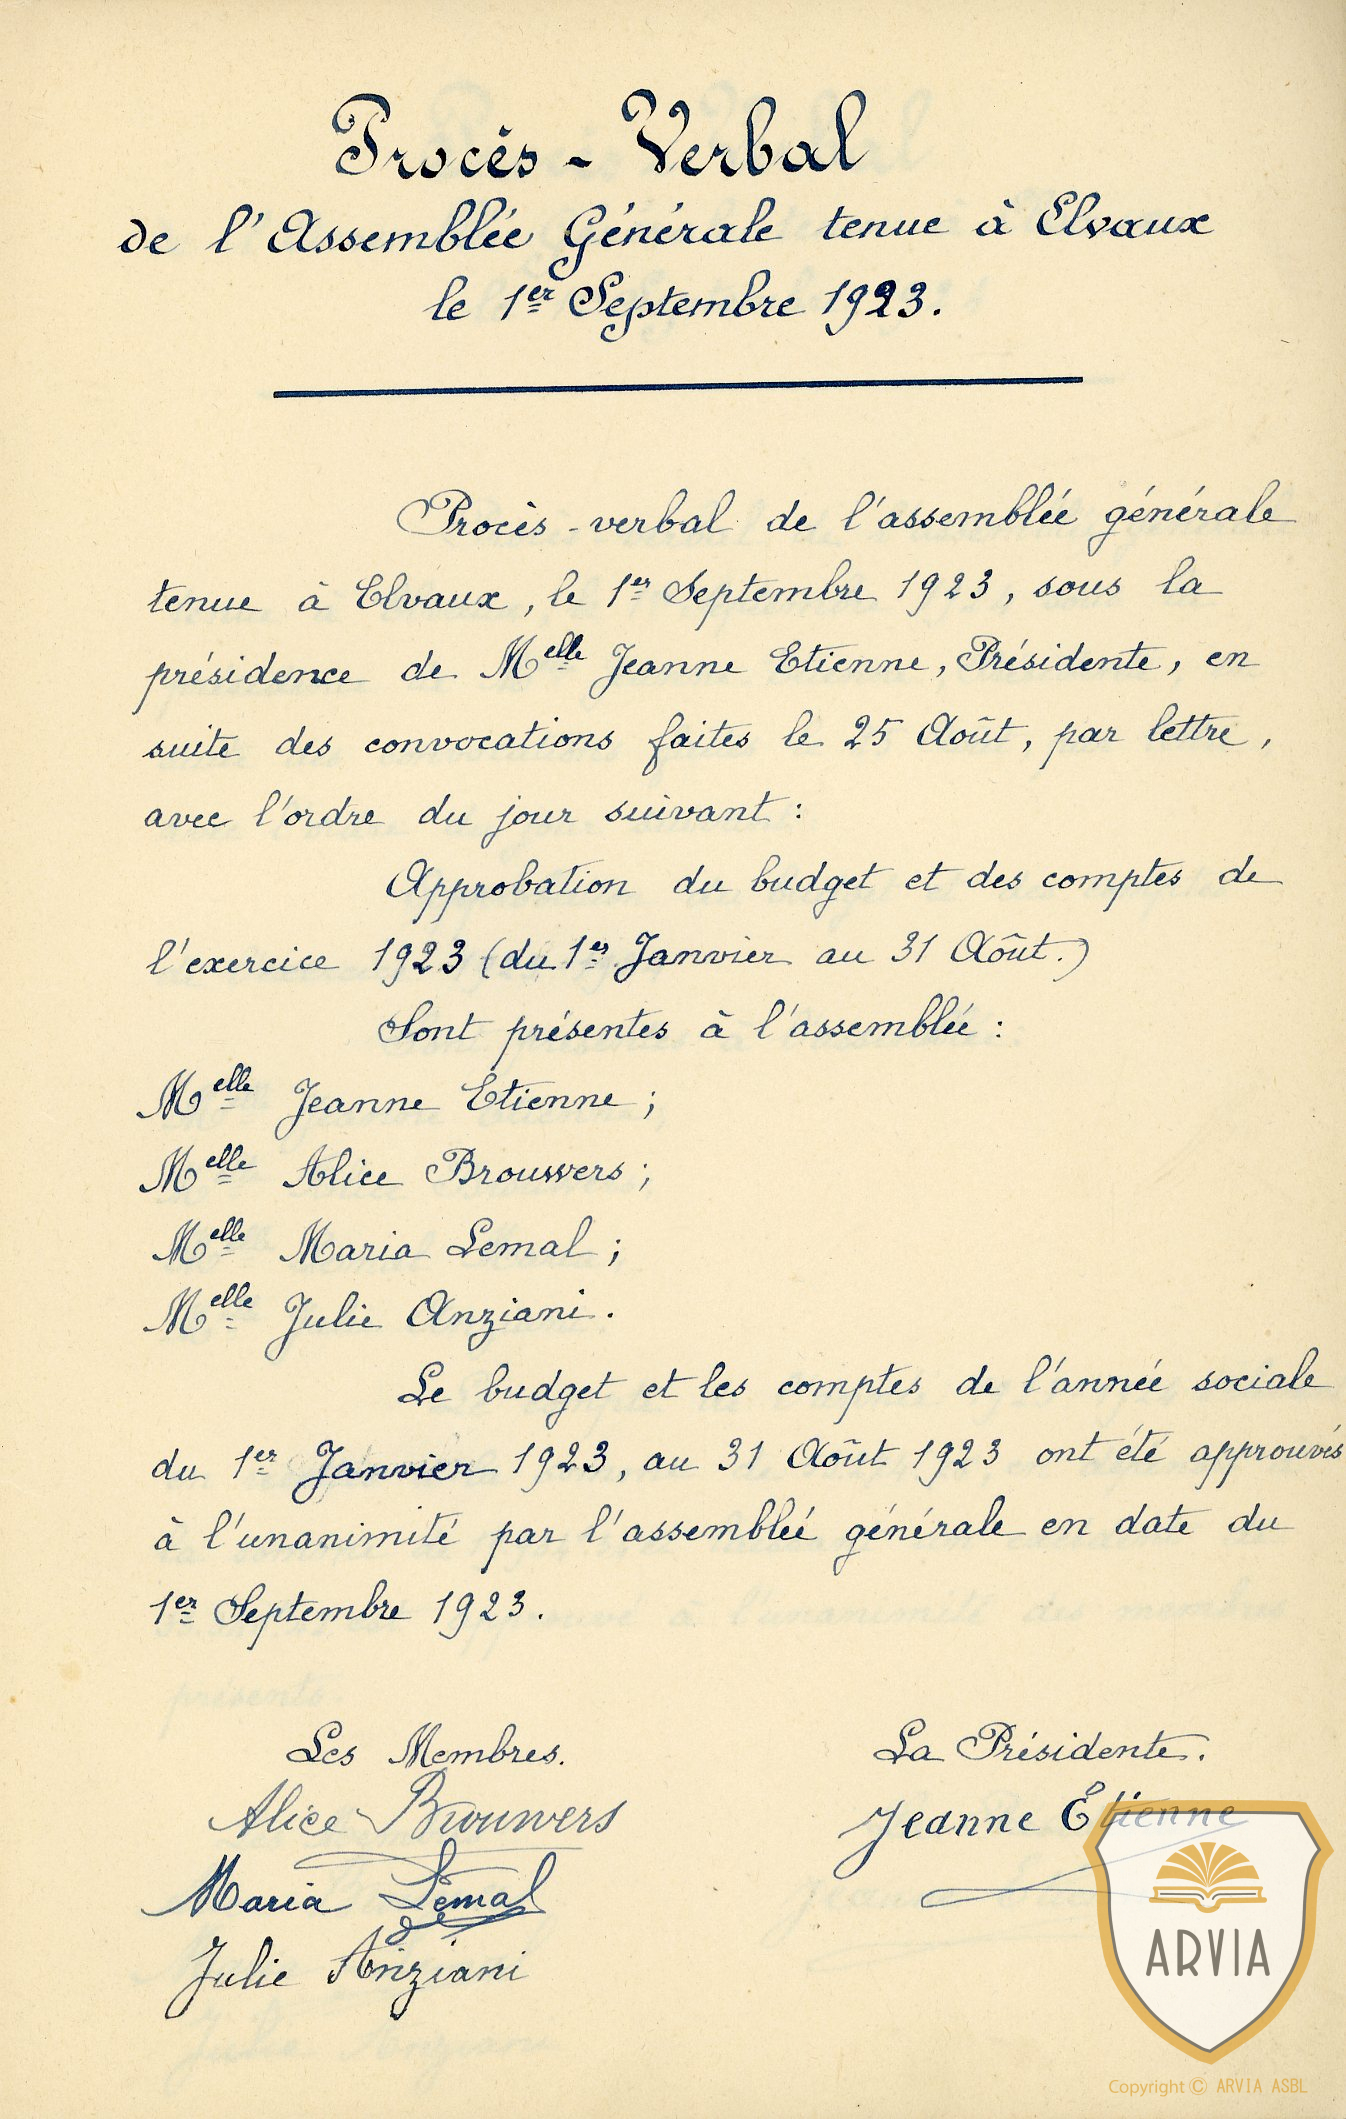 Procès - Verbal
de l'Assemblée Générale tenue à Elvaux
le 1er Septembre 1923.
Procès-verbal de l'assemblée générale
tenue à Elvaux, le 1er Septembre 1923, sous la
présidence de Melle Jeanne Etienne, Présidente, en
suite des convocations faites le 25 Août, par lettre,
avec l'ordre du jour suivant :
Approbation du budget et des comptes de
l'exercice 1923 (du 1er Janvier au 31 Août.)
Sont présentes à l'assemblée :
Melle Jeanne Etienne ;
Melle Alice Brouwers ;
Melle Maria Lemal ;
Melle Julie Anziani.
Le budget et les comptes de l'année sociale
du 1er Janvier 1923, au 31 Août 1923 ont été approuvés
à l'unanimité par l'assemblée générale en date du
1er Septembre 1923.
Les Membres. La Présidente.
Alice Brouwers Jeanne Etienne
Maria Lemal
Julie Anziani
ARVIA
Copyright © ARVIA ASBL